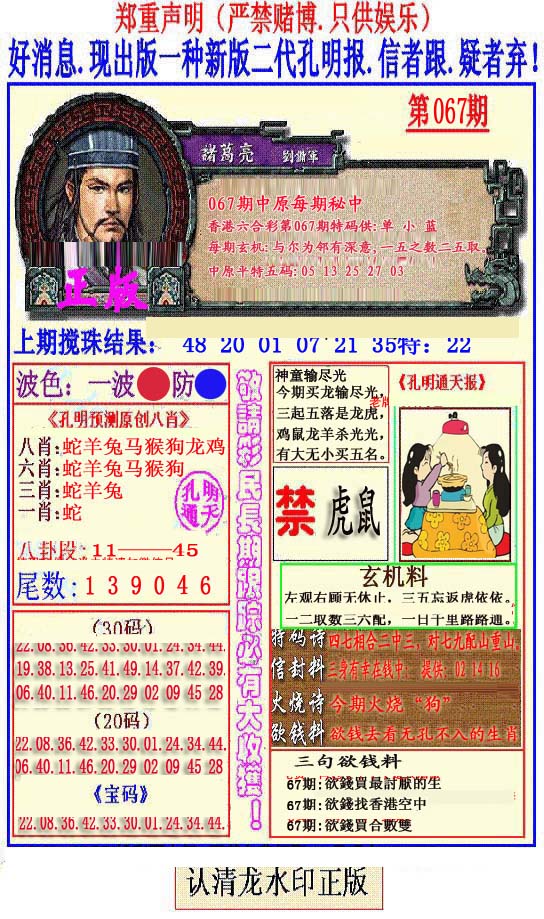 郑重声明（严禁赌博.只供娱乐）
好消息.现出版一种新版二代孔明报.信者跟.疑者弃!
第067期
諸葛亮 劉備軍
067期中原每期秘中
香港六合彩第067期特码供:单 小 蓝
每期玄机:与尔为邻有深意,一五之数二五取
中原平特五码:05 13 25 27 03
正版
上期搅珠结果: 48 20 01 07 21 35特:22
波色:一波 防
《孔明预测原创八肖》
八肖:蛇羊兔马猴狗龙鸡
六肖:蛇羊兔马猴狗
三肖:蛇羊兔
一肖:蛇
孔明
通天
八卦段:11——45
尾数:139046
(30码)
22.08.36.42.33.30.01.24.34.44.
19.38.13.25.41.49.14.37.42.39.
06.40.11.46.20.29 02 09 45 28
(20码)
22.08.36.42.33.30.01.24.34.44.
06.40.11.46.20.29 02 09 45 28
《宝码》
22.08.36.42.33.30.01.24.34.44.
敬請彩民長期跟踪必有大收獲!
神童输尽光
今期买龙输尽光,
三起五落是龙虎,
鸡鼠龙羊杀光光,
有大无小买五名。
《孔明通天报》
禁 虎鼠
玄机料
左观右顾无休止，三五忘返虎依依。
一二取数三六配，一日千里路路通。
特码诗 四七相合三中三，对七九配山重山,
信封料 三身有幸在钱中: 提供: 02 14 16
火烧诗 今期火烧“狗”
欲钱料 欲钱去看无孔不入的生肖
三句欲钱料
67期:欲錢買最討厭的生
67期:欲錢找香港空中
67期:欲錢買合數雙
认清龙水印正版